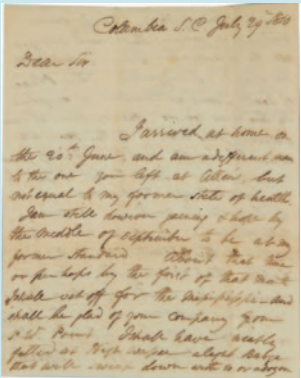 Columbia S. C. July 29th
Dear Sir
I arrived at home on
the 20th June, and am a different man
to the one you left at Aiken, but
not equal to my former state of health
I am still however gaining & hope by
the middle of September to be at my
former standard About that time
or perhaps by the first of that month
I shall set off for the Mississippi and
shall be glad of your company from
Pond I shall have
at
that will down with to or